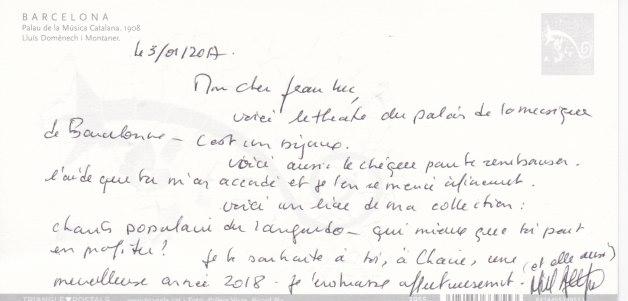 BARCELONA
Palau de la Música Catalana. 1908
Lluís Domènech i Montaner.
le 3/01/2017.
Mon cher Jean Luc,
voici le theatre du palais de la musique
de Barcelonne – c'est un bijoux.
voici aussi le chéque pour te rembourser.
l'aide que tu m'as accordé et je t'en remercie infiniment.
voici un livre de ma collection :
chants populaire du languedoc – qui mieux que toi peut
en profiter!
Je te souhaite à toi, à Claire, une (et elle aussi)
merveilleuse année 2018 - Je t'embrasse affectueusement -
TRIANGLE POSTALS